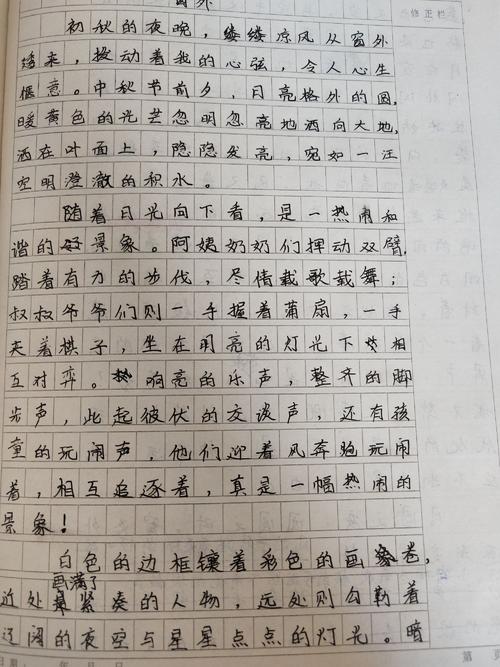 窗外
修正栏
初秋的夜晚，缕缕凉风从窗外
矮来，拨动着我的心弦，令人心生
惬意。中秋节前夕，月亮格外的圆，
暖黄色的光芒忽明忽亮地洒向大地，
洒在叶面上，隐隐发亮，宛如一汪
空明澄澈的积水。
随着月光向下看，是一热闹和
谐的好景象。阿姨奶奶们挥动双臂，
踏着有力的步伐，尽情载歌载舞；
叔叔爷爷们则一手握着蒲扇，一手
夹着棋子，坐在明亮的灯光下相
互对弈。响亮的乐声，整齐的脚
步声，此起彼伏的交谈声，还有孩
童的玩闹声，他们迎着风奔跑玩闹
着，相互追逐着，真是一幅热闹的
景象！
白色的边框镶着彩色的画卷，
近处画满了紧凑的人物，远处则勾勒着
辽阔的夜空与星星点点的灯光。暗